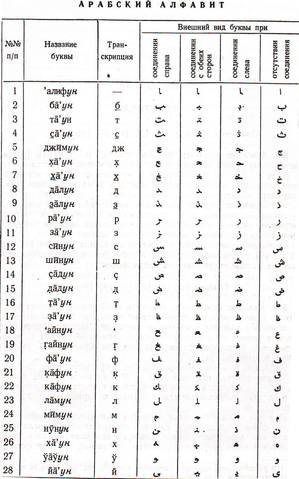 АРАБСКИЙ АЛФАВИТ
№№ п/п Название буквы Транскрипция Внешний вид буквы при
соединении справа соединении с обеих сторон соединении слева отсутствии соединения
1 'алифун — ـا ـا ا ا
2 ба̄'ун б ـب ـبـ بـ ب
3 та̄'ун т ـت ـتـ تـ ت
4 с̱а̄'ун с̱ ـث ـثـ ثـ ث
5 джӣмун дж ـج ـجـ جـ ج
6 х̣а̄'ун х̣ ـح ـحـ حـ ح
7 х̱а̄'ун х̱ ـخ ـخـ خـ خ
8 да̄лун д ـد ـد د د
9 з̱а̄лун з̱ ـذ ـذ ذ ذ
10 ра̄'ун р ـر ـر ر ر
11 за̄'ун з ـز ـز ز ز
12 сӣнун с ـس ـسـ سـ س
13 шӣнун ш ـش ـشـ شـ ش
14 с̣а̄дун с̣ ـص ـصـ صـ ص
15 д̣а̄дун д̣ ـض ـضـ ضـ ض
16 т̣а̄'ун т̣ ـط ـطـ طـ ط
17 з̣а̄'ун з̣ ـظ ـظـ ظـ ظ
18 'айнун ' ـع ـعـ عـ ع
19 г̣айнун г̣ ـغ ـغـ غـ غ
20 фа̄'ун ф ـف ـفـ فـ ف
21 к̣а̄фун к̣ ـق ـقـ قـ ق
22 ка̄фун к ـك ـكـ كـ ك
23 ла̄мун л ـل ـلـ لـ ل
24 мӣмун м ـم ـمـ مـ م
25 нӯнун н ـن ـنـ نـ ن
26 ха̄'ун х ـه ـهـ هـ ه
27 ўа̄ўун ў ـو ـو و و
28 йа̄'ун й ـي ـيـ يـ ي